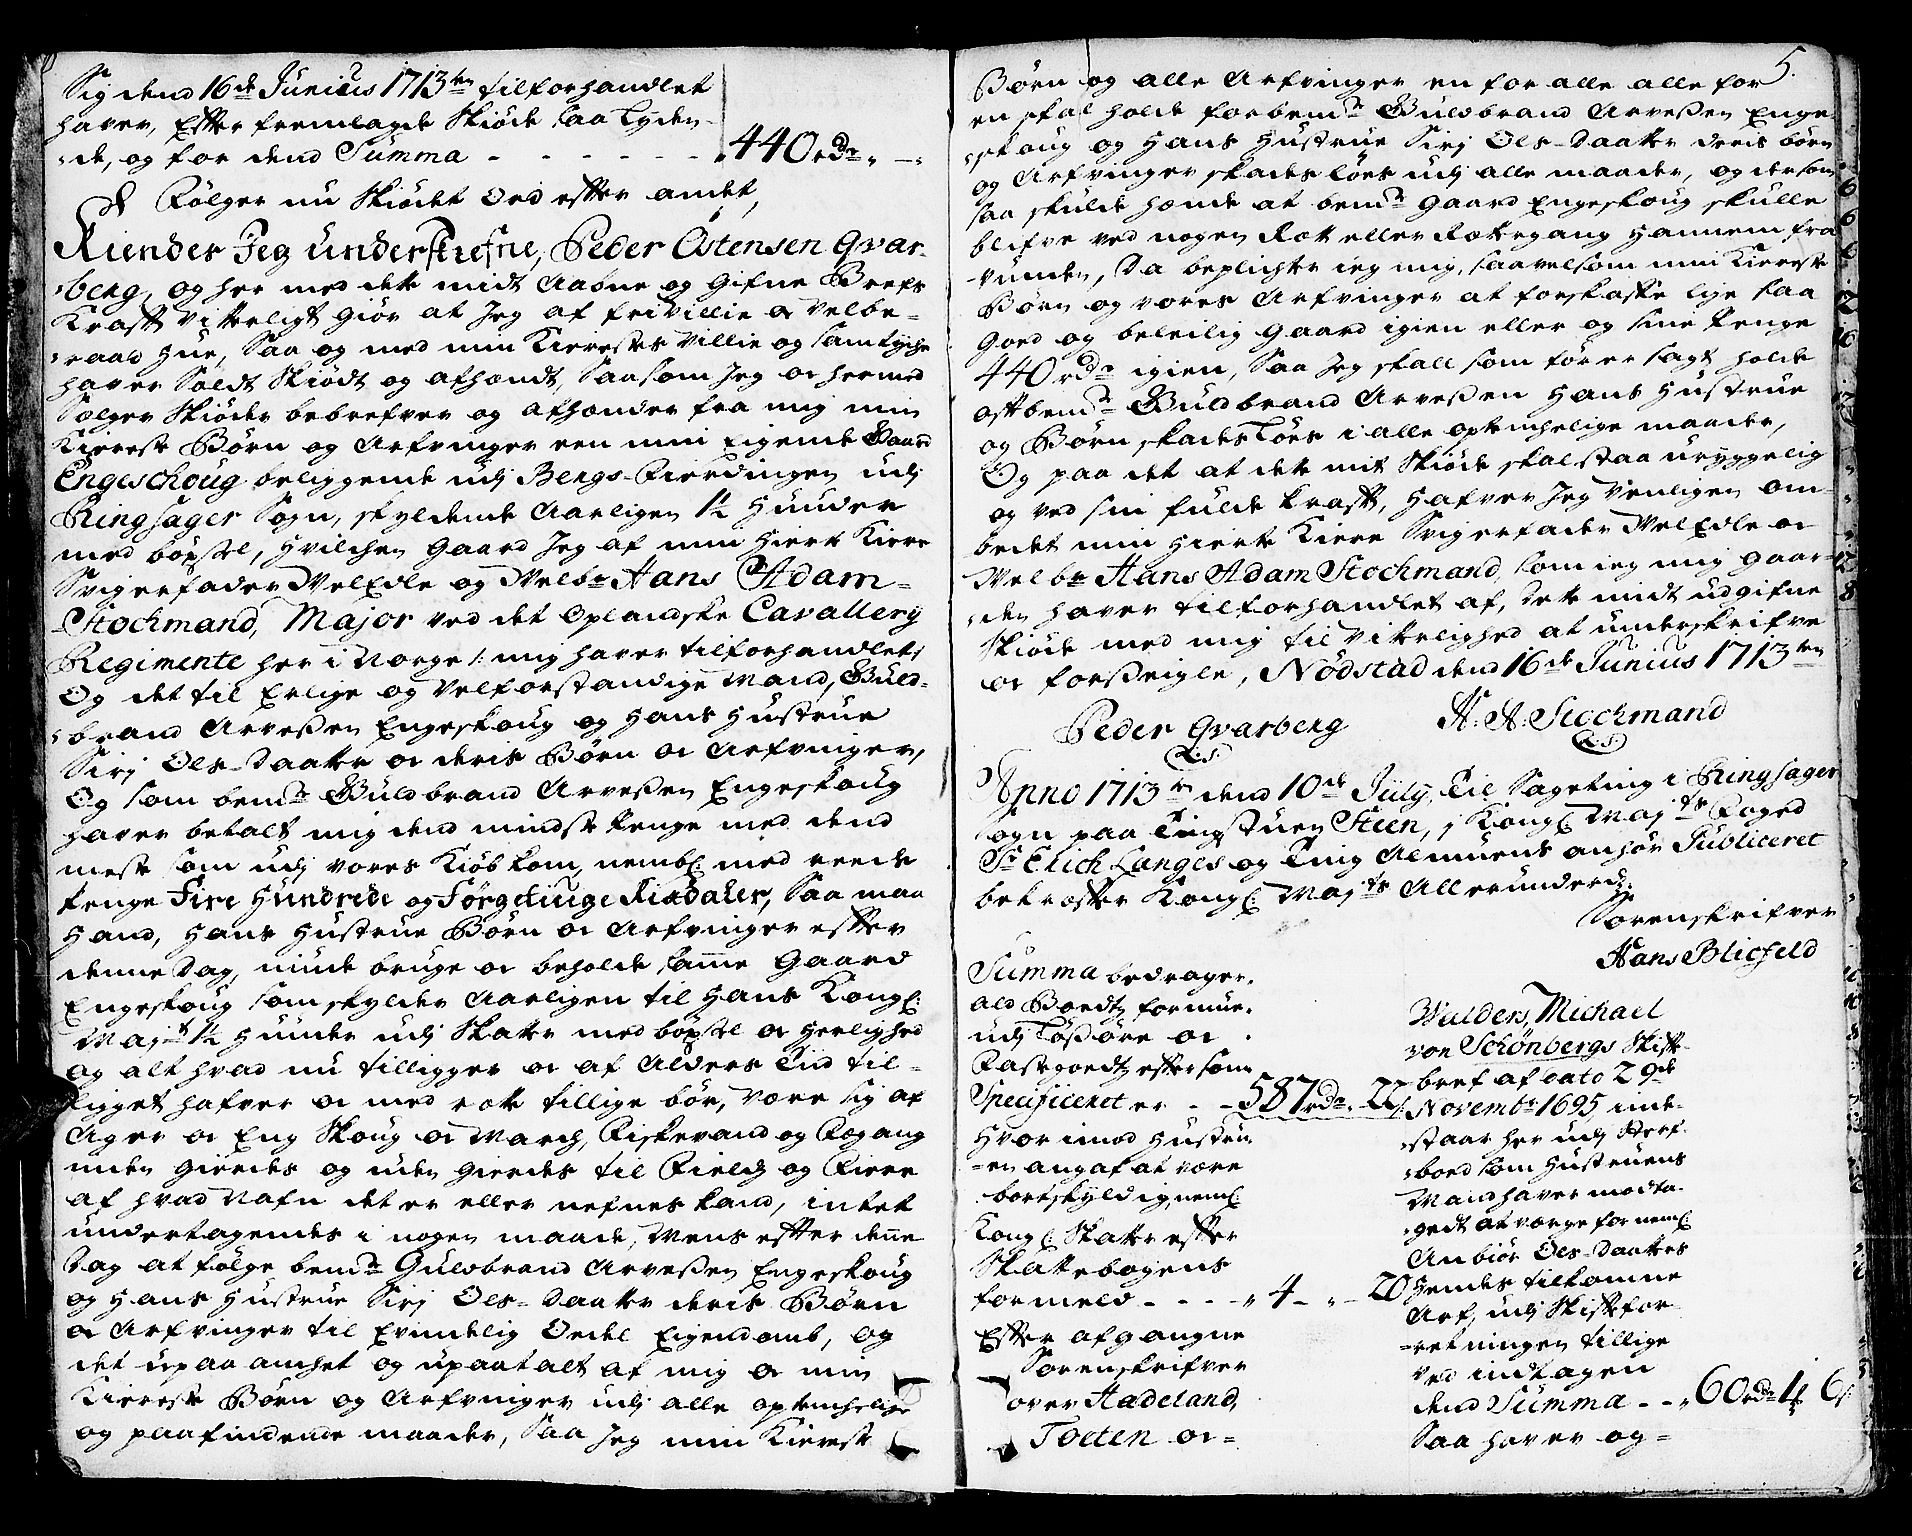 Sig dend 16de Junius 1713ten tilforhandlet
haver, Efter fremlagde Skiöde saa Lyden-
de, og for dend Summa - - - - - - 440 rdr „ - „
Fölger nu Skiödet Ord efter andet,
Kiender Jeg underskrefne, Peder Östensen Qvar-
berg, og her med dette midt Aabne og Gifne Brefs
Krafft Vitterligt giör at Jeg af frivillie oc Velbe-
raad Hue, Saa og med min Kierestes Villie og Samtyche
haver Soldt Skiödt og afhendt, Saasom Jeg oc hermed
Sælger Skiöder bebrefver og afhender fra mig min
Kiereste Börn og Arfvinger een min Eigende Gaard
Engeschoug beliggende udj Bergs-Fierdingen udj
Ringsager Sogn, skyldende Aarligen 1½ Hunder
med böxsel, Hvilchen Gaard Jeg af min Hierte Kiere
Svigerfader Wel Edle og Welbr Hans Adam-
Stochmand, Major ved det Oplandske Cavallery
Regimente her i Norge /: mig haver tilforhandlet:/
Og det til Erlige og Velforstandige Mand, Guld-
brand Arveßen Engeskoug og Hans Hustrue
Sirj Ols-Daatter oc deris Börn oc Arfvinger,
Og som bemte Guldbrand Arveßen Engeskoug
haver betalt mig dend mindste penge med dend
mest som udj vores Kiöb kom, nembl. med reede
penge Fire Hundrede og Förgetiuge Rixdaler, Saa maa
Hand, Hans Hustrue Börn oc Arfvinger efter
denne Dag, niude bruge oc beholde samme Gaard
Engeskoug som skylder Aarligen til Hans Kongl:
Majt 1½ Hunder udj Skatter med böxsel oc Herlighed
og alt hvad nu tilligger oc af Alders Tiid til-
ligget hafver oc med rette tillige bör, være sig af
Ager oc Eng Skoug oc March, Fiskevand og Fægang
inden gierdes og uden gierdes til Field og Fiere
af hvad Nafn det er eller nefnes kand, intet
undertagendes i nogen maade, Mens efter denne
Dag at fölge bemte Guldbrand Arveßen Engeskoug
og Hans Hustrue Sirj Ols-Daatter deris Börn
oc Arfvinger til Evindelig Odel Eigendomb, og
det upaaanchet og upaatalt af mig oc min
Kiereste Börn og Arfvinger udj alle optenchelige
og paafindende maader, Saa Jeg min Kiereste
5.
Börn og alle Arfvinger en for alle alle for
en skal holde forbemte Guldbrand Arveßen Enge-
skoug og Hans Hustrue Sirj Ols-Daatter deris börn
og Arfvinger skadeslöes udj alle maader, og dersom
saa skulde hende at bemte Gaard Engeskoug skulle
blifve ved nogen Ret eller Rettergang Hannem fra
vunden, Da beplichter ieg mig, saavelsom min Kiereste
Börn og vores Arfvinger at forskaffe lige saa
Goed og beleilig Gaard igien eller og sine penge
440 rdr igien, Saa Jeg skall som för er sagt holde
oftbemte Guldbrand Arveßen Hans Hustrue
og Börn skadeslöes i alle optenchelige maader,
Og paa det at dette mit Skiöde skal staa uryggelig
og ved sin fulde krafft, Hafver Jeg Venligen om-
bedet min Hierte Kiere Svigerfader Wel Edle oc
Welbr Hans Adam Stochmand, som ieg mig Gaar-
den haver tilforhandlet af, Dette midt udgifne
Skiöde med mig til Vitterlighed at underskrifve
oc forseigle, Nödstad dend 16de Junius 1713ten
Peder Qvarberg H: A: Stochmand
L:S: L:S:
Anno 1713ten dend 10de July, Til Sageting i Ringsager
Sogn paa Tingstuen Steen, j Kongl. Majts Foged
Sr Erich Langes og Ting Almuens anhör Publiceret
bekræfter Kongl: Majts Allerunderd:
Sorenskrifver
Hans Blicfeld
Summa bedrager,
ald Boedtz formue,
udj Lößöre oc
Fastegoedtz eftersom
Specificeret er - - 587 rdr „ 22 s:
Hvor imod Hustru-
en angaf at være
bortskyldig, neml:
Kongl: Skatter efter
Skattebogens
formeld - - - - „ 4 - „ - 20
Efter afgangne
Sorenskrifver
over Hadeland,
Toeten oc-
Walders, Michael
von Schönbergs Skifte
bref af Dato 29de
Novembr 1695, inde-
staar her udj Sterf-
boed som Hustruens
Mand haver modta-
gedt at værge for neml:
Anbiör Ols-Daatters
Hendes tilkomne
Arf, udj Skiftefor-
retningen tillige
ved indtagen
dend Summa - - „ 60 rdr 1 ß 6 s:
Saa haver og-